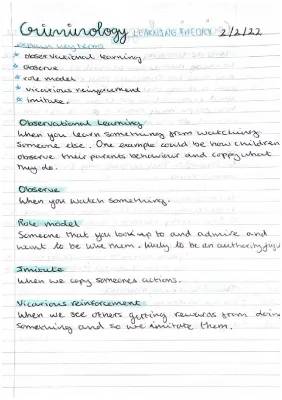 Criminology LEARNING THEORY 2/2/22
explain key terms
* observational learning
* observe
* role model
* vicarious reinforcement
* imitate.
Observational Learning
When you learn something from watching
someone else. One example could be how children
observe their parents behaviour and coppy what
they do.
Observe
When you watch something.
Role model
Someone that you look up to and admire and
want to be like them. likely to be an authority figu
Imitate
When we copy someones actions.
Vicarious reinforcement
When we see others getting rewards from doin
something and so we imitate them.